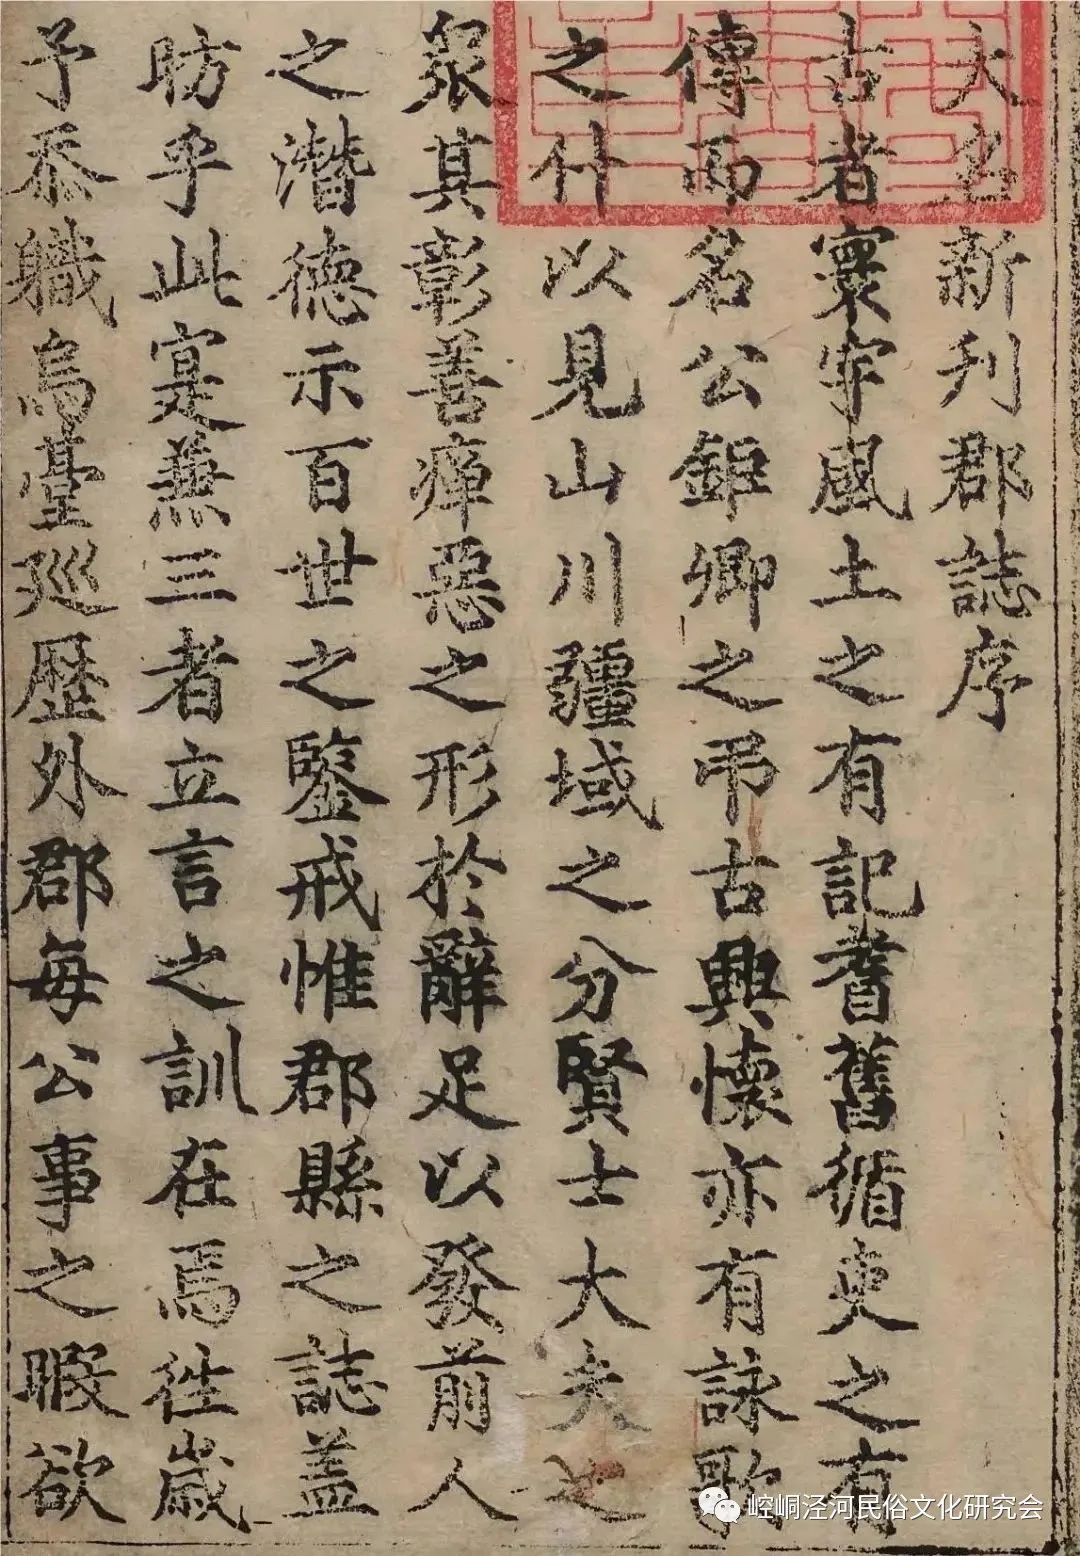 大名新刊郡誌序
古者寰宇風土之有記耆舊循吏之有
傳而名公鉅卿之吊古興懷亦有詠歌
之什以見山川疆域之分賢士大夫之
衆其彰善癉惡之形於辭足以發前人
之潛德示百世之鑒戒惟郡縣之誌盖
昉乎此寔兼三者立言之訓在焉往歲
予忝職烏臺廵歷外郡每公事之暇欲
崆峒泾河民俗文化研究会